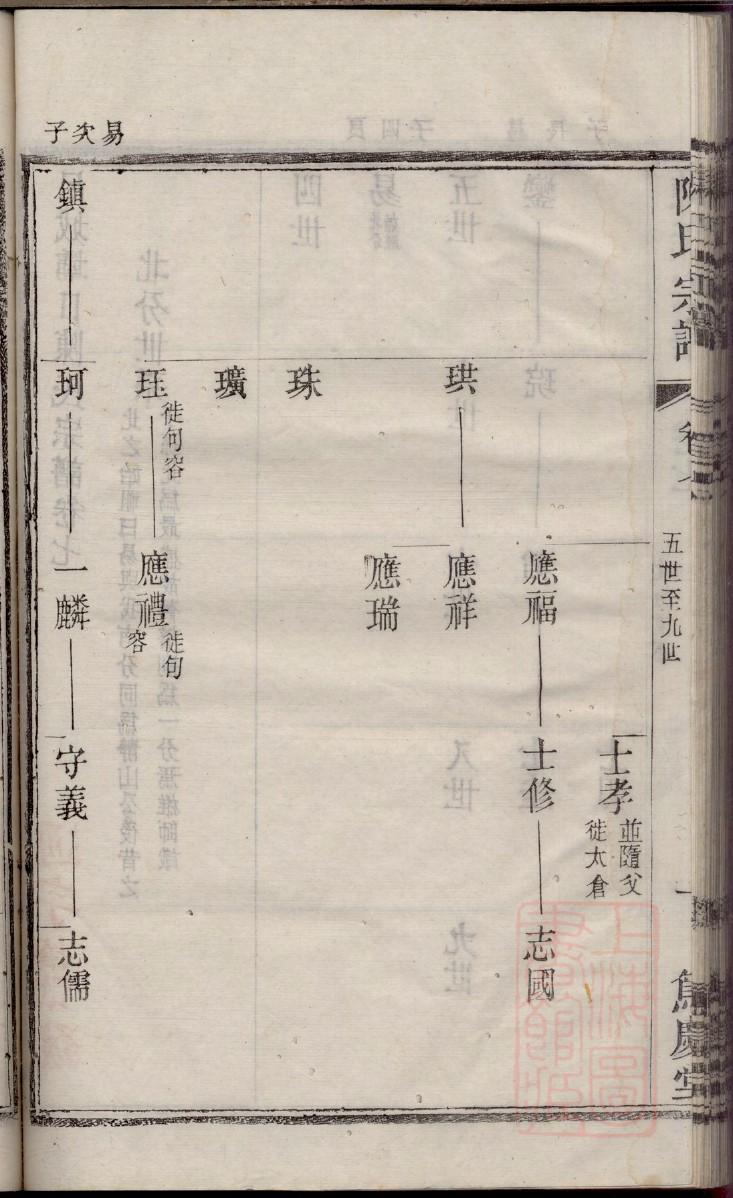 陳氏宗譜
卷七
五世至九世
一
篤慶堂
士孝 並隨父徙太倉
應福 士修 志國
珙 應祥
應瑞
珠
璜
珏 徙句容 應禮 徙句容
易次子
鎮 珂 一麟 守義 志儒
上海圖書館藏